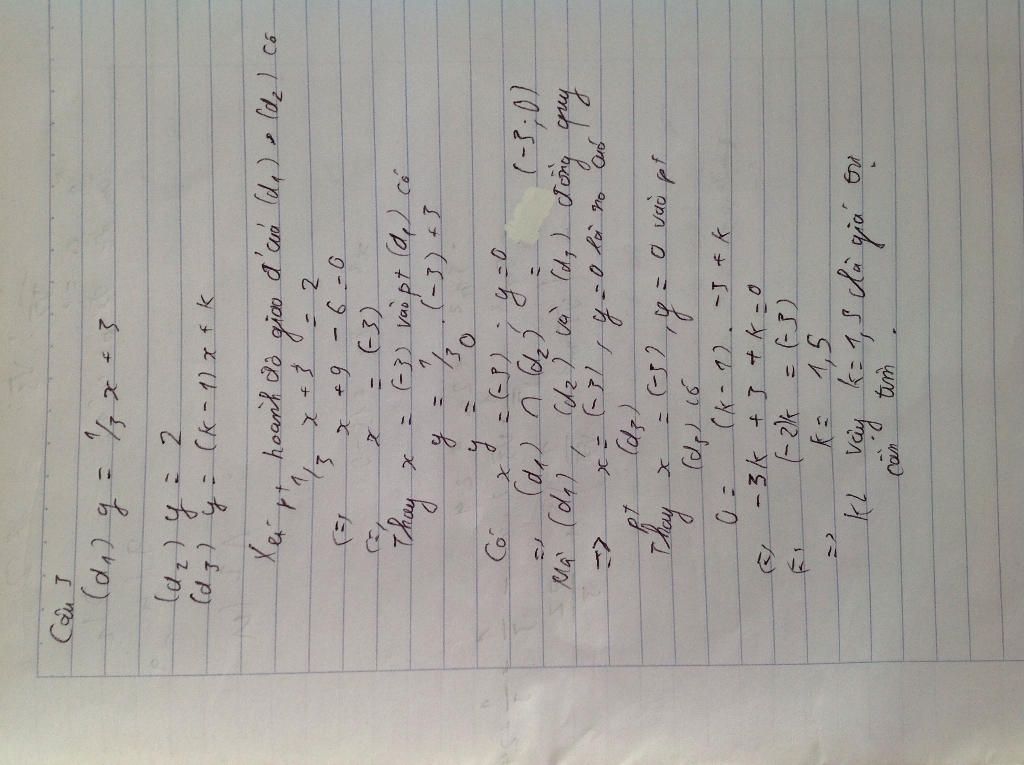 Câu 3
(d1) y = 1/3 x + 3
(d2) y = 2
(d3) y = (k - 1)x + k
Xét pt hoành độ giao đ' của (d1) & (d2) có
1/3 x + 3 = 2
(=) x + 9 - 6 = 0
(=) x = (-3)
Thay x = (-3) vào pt (d1) có
y = 1/3 . (-3) + 3
y = 0
Có x = (-3) . y = 0
=) (d1) ∩ (d2) = (-3 ; 0)
Mà (d1), (d2) và (d3) đồng quy
=> x = (-3), y = 0 là no của
pt (d3)
Thay x = (-3), y = 0 vào pt
(d3) có
0 = (k - 1) . -3 + k
(=) -3k + 3 + k = 0
(=) (-2)k = (-3)
=> k = 1,5
KL vậy k = 1,5 là giá trị
cần tìm .